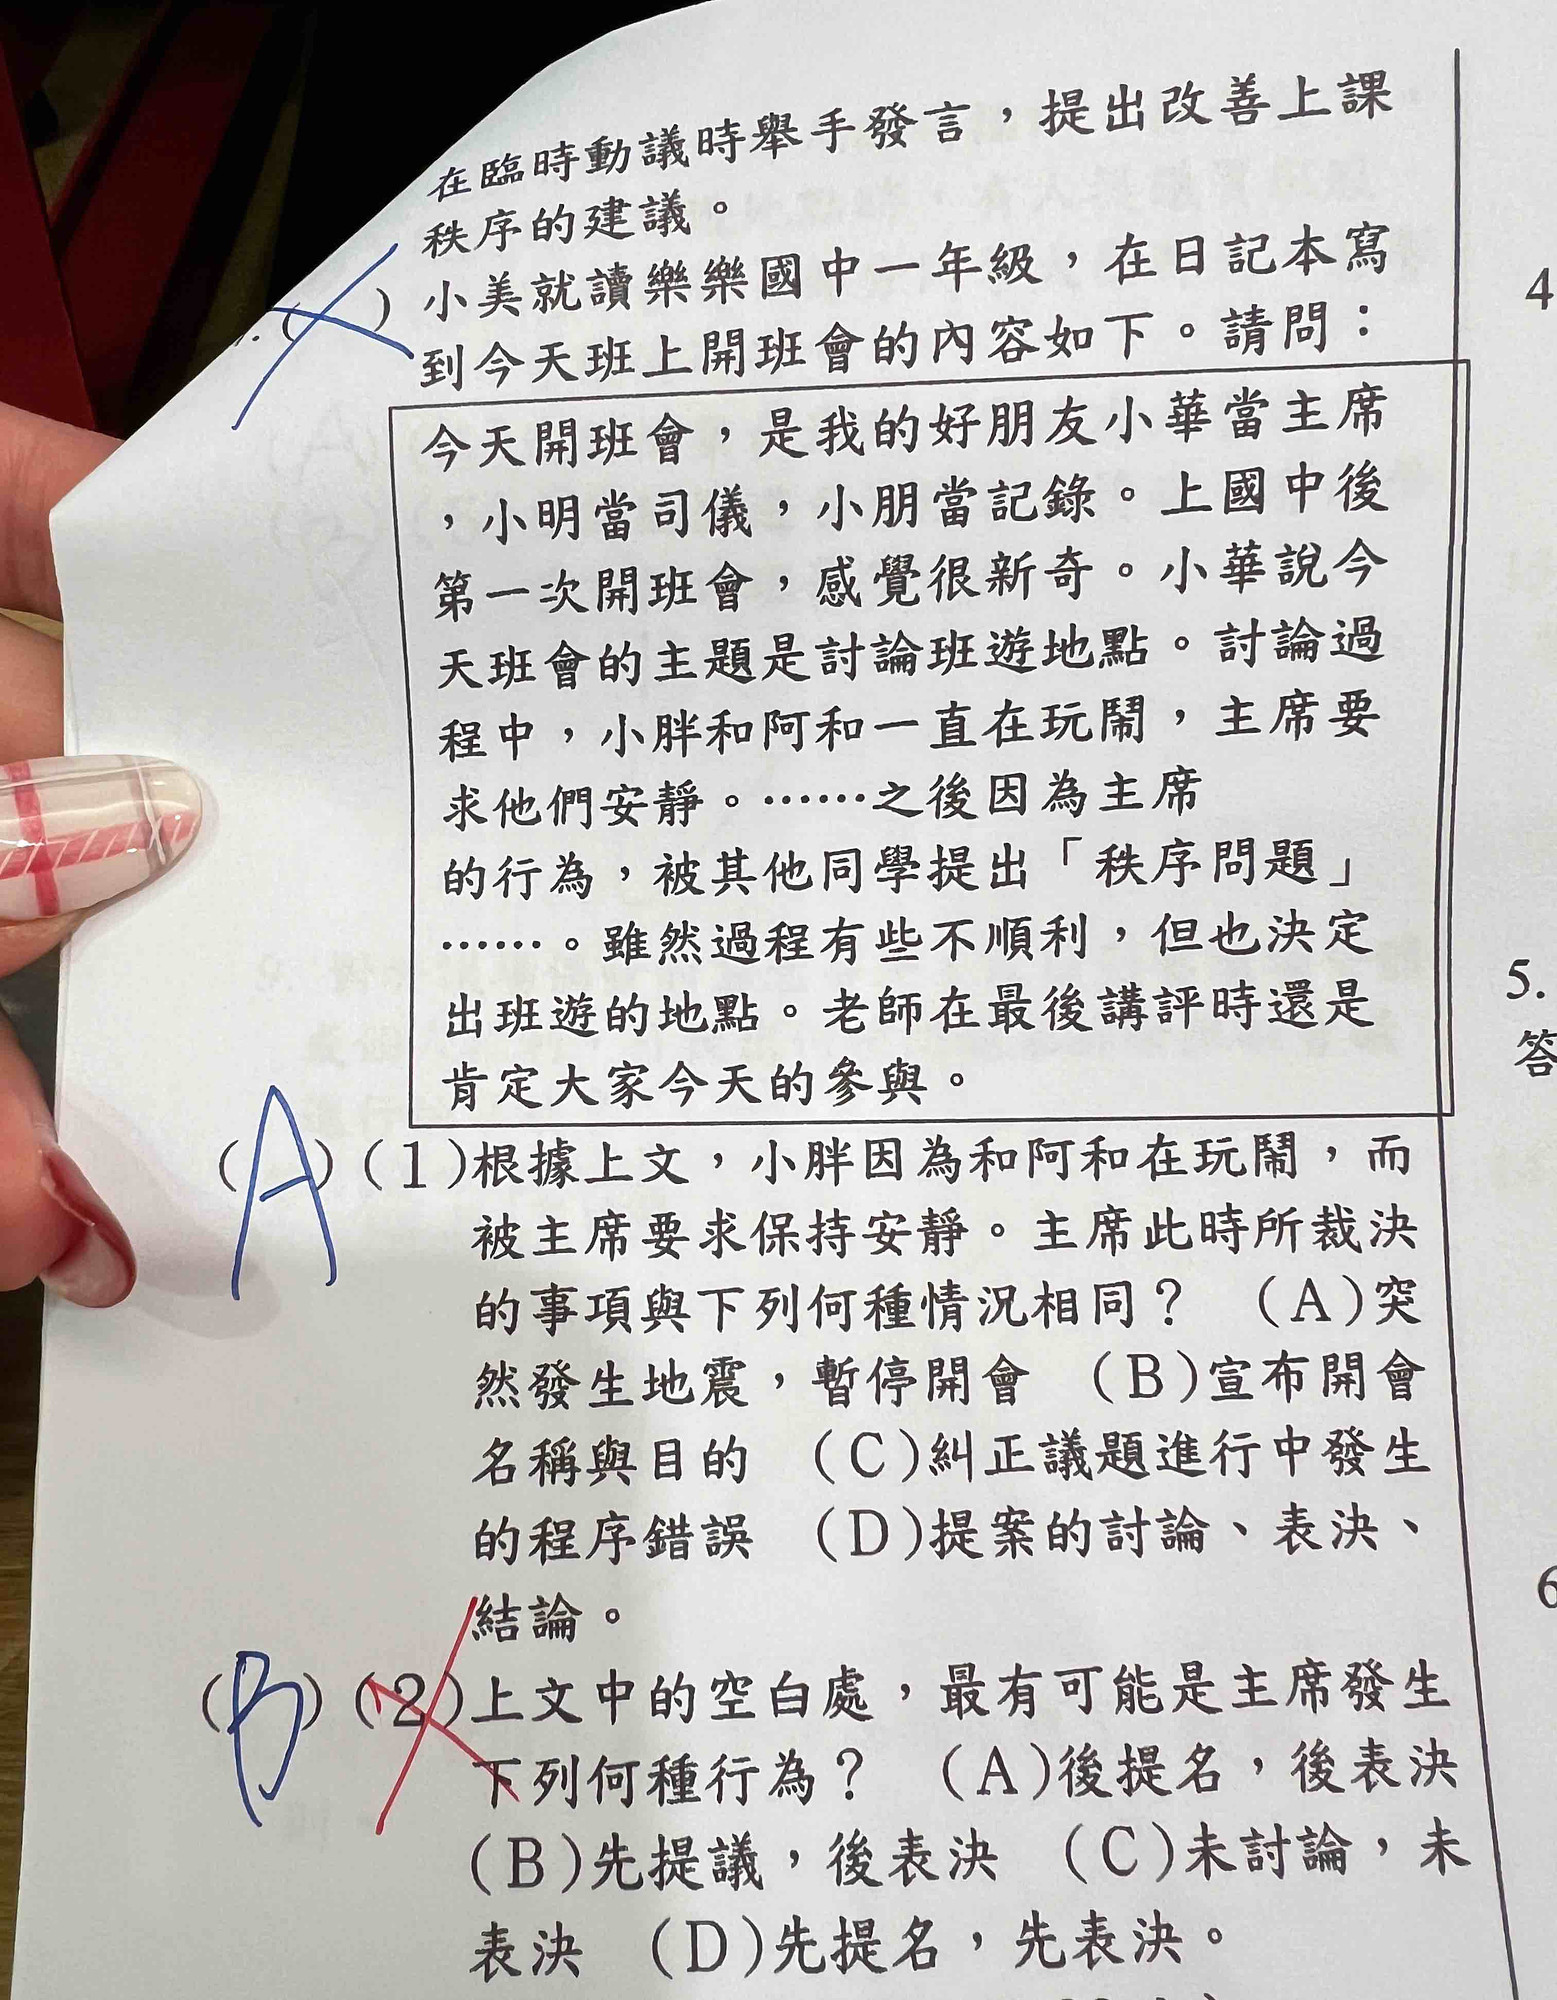 在臨時動議時舉手發言，提出改善上課
秩序的建議。
( ) 小美就讀樂樂國中一年級，在日記本寫
到今天班上開班會的內容如下。請問：
今天開班會，是我的好朋友小華當主席
，小明當司儀，小朋當記錄。上國中後
第一次開班會，感覺很新奇。小華說今
天班會的主題是討論班遊地點。討論過
程中，小胖和阿和一直在玩鬧，主席要
求他們安靜。⋯⋯之後因為主席
的行為，被其他同學提出「秩序問題」
⋯⋯。雖然過程有些不順利，但也決定
出班遊的地點。老師在最後講評時還是
肯定大家今天的參與。
(A)(1)根據上文，小胖因為和阿和在玩鬧，而
被主席要求保持安靜。主席此時所裁決
的事項與下列何種情況相同？ (A)突
然發生地震，暫停開會 (B)宣布開會
名稱與目的 (C)糾正議題進行中發生
的程序錯誤 (D)提案的討論、表決、
結論。
(B)(2)上文中的空白處，最有可能是主席發生
下列何種行為？ (A)後提名，後表決
(B)先提議，後表決 (C)未討論，未
表決 (D)先提名，先表決。
4
5.
答
6